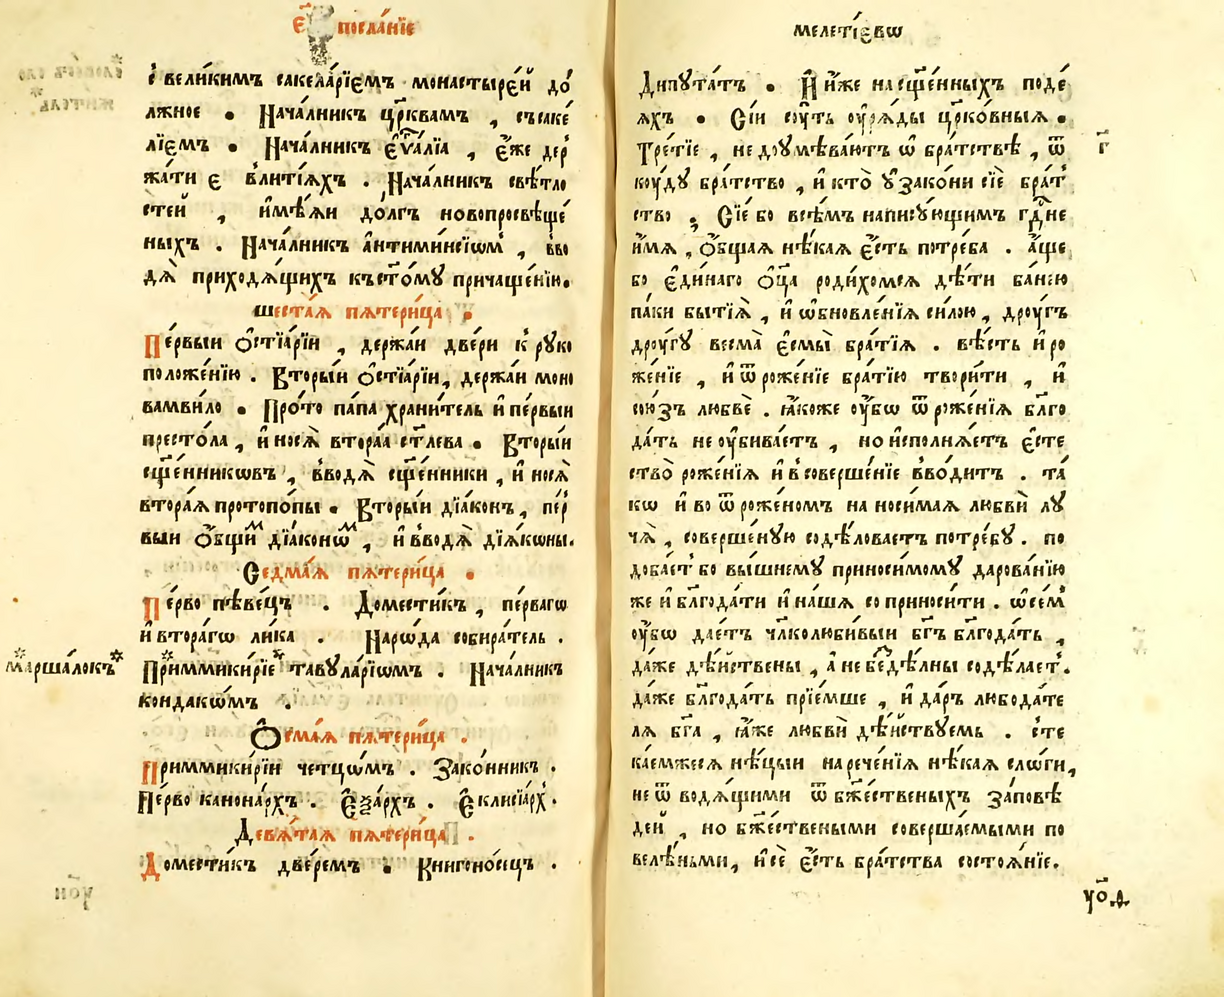 Е҃ посла́нїе
с̾ вели́кимъ сакела́рїємъ монастыре́й до́
лжное . Нача́лникъ цр҃квамъ , съсаке́
лїемъ . Нача́лникъ є҆ѵⷢ҇а́лїа , є҆́же дер̾
жа́ти є в̾литі́ѧхъ . Нача́лникъ свѣ́тло
стей , и҆мѣ́ѧи до́лгъ новопросвѣще́
ныхъ . Нача́лникъ а҆нтими́нсїѡм̾ , вво
дѧ̀ приходѧ́щихъ къст҃о́мꙋ причаще́нїю.
шеста́ѧ пѧтери́ца .
Пе́рвыи ѻ҆стїа́рїи , держа́и две́ри к̾ рꙋко
положе́нїю . Вторы́и ѻ҆стїа́рїи, держа́и моно
вамви́ло . Про́то папа храни́тель и҆ пе́рвыи
престо́ла , и҆ носѧ̀ втора́а ст҃лева . Вторы́и
сщ҃е́нникѡвъ , в̾водѧ̀ сщ҃е́нники , и҆ носѧ̀
втора́ѧ протопо́пы . Вторы́и дїа́конъ , пе́р̾
выи ѻ҆́бщїй дїаконѡ́м , и҆ в̾водѧ̀ дїѧ́кѡны.
Седма́ѧ пѧтери́ца .
Пе́рво пѣве́цъ . Доместі́къ , пе́рвагѡ
и҆ втора́гѡ ли́ка . Нарѡ́да собира́тель .
маршало́къ* При́ммики́рїе* тавꙋла́рїѡмъ . Нача́лникъ
кондакѡ́мъ .
Ѻ҆сма́ѧ пѧтери́ца .
Приммики́рїи четцѡ́мъ . Зако́нникъ .
Пе́рво канона́рхъ . Є҆ѯа́рхъ . Є҆клисїа́рх̾ .
Девѧ́таѧ пѧтери́ца .
Доместі́къ две́ремъ . Книгоно́сецъ .
мелеті́євѡ
Дипꙋта́тъ . И҆ и҆́же на сщ҃е́нныхъ поде́
ѧхъ . Сі́и сꙋ́ть ᲂу҆рѧ́ды цр҃ко́вныѧ .
Тре́тїе , не доꙋмѣва́ютъ ѡ҆ бра́тствѣ , ѿ г҃
кꙋ́дꙋ бра́тство , и҆ кто̀ ᲂу҆зако́ни сїѐ бра́т̾
ство ; Сїе́ бо всѣ́мъ написꙋ́ющимъ гдⷭ҇не
и҆́мѧ , ѻ҆́бщаѧ нѣ́каѧ є҆́сть потре́ба . а҆́ще
бо є҆ди́наго ѻ҆ц҃а роди́хомсѧ дѣ́ти ба́нею
па́ки бытїѧ̀ , и҆ ѡ҆бновле́нїѧ си́лою , дрꙋ́гъ
дрꙋ́гꙋ весма̀ є҆смы̀ бра́тїѧ . вѣ́сть и҆ ро
же́нїе , и҆ ѿ роже́нїе бра́тїю твори́ти , и҆
сою́зъ любвѐ . ꙗ҆́коже ᲂу҆́бѡ ѿ роже́нїѧ бл҃го
да́ть не ᲂу҆бива́етъ , но и҆сполнѧ́етъ є҆сте
ство̀ роже́нїѧ и҆ в̾соверше́нїе в̾во́дитъ . та́
кѡ и҆ во ѿ роже́номъ на носи́маѧ любвѝ лꙋ
чѧ̀ , соверше́нꙋю содѣ́ловаетъ потре́бꙋ . по
доба́ет̾ бо вы́шнемꙋ приноси́момꙋ дарова́нїю
же и҆ бл҃года́ти и҆ на́шѧ со приноси́ти . ѡ҆ се́м̾
ᲂу҆́бѡ дае́тъ чл҃колюби́выи бг҃ъ бл҃года́ть ,
да́же дѣ́йствены , а҆ не бедѣ́лны содѣ́лает̾.
да́же бл҃года́ть прїе́мше , и҆ да́ръ любода́те
лѧ бг҃а , ꙗ҆́же любвѝ дѣ́йствꙋемь . сте
ка́емжесѧ нѣ́цыи на рече́нїѧ нѣ́каѧ слѡ́ги,
не ѿ водѧ́щими ѿ бж҃е́ственыхъ за́повѣ
дей , но бж҃е́ствеными соверша́емыми по
велѣ́ньми, и҆ сѐ є҆́сть бра́тства состоѧ́нїе.